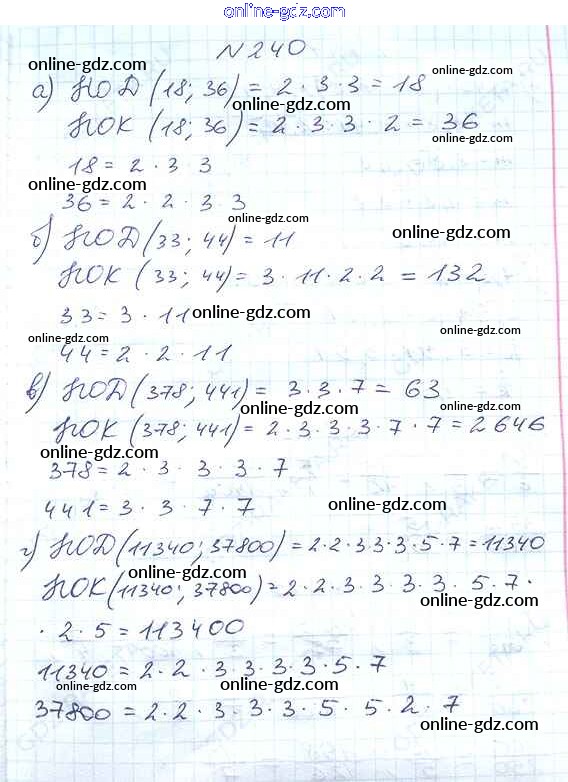 www.online-gdz.com
N 240
online-gdz.com
а) НОД (18; 36) = 2 · 3 · 3 = 18
online-gdz.com
НОК (18; 36) = 2 · 3 · 3 · 2 = 36
online-gdz.com
18 = 2 · 3 · 3
online-gdz.com
online-gdz.com
36 = 2 · 2 · 3 · 3
online-gdz.com
online-gdz.com
б) НОД (33; 44) = 11
НОК (33; 44) = 3 · 11 · 2 · 2 = 132
33 = 3 · 11
online-gdz.com
online-gdz.com
online-gdz.com
44 = 2 · 2 · 11
в) НОД (378; 441) = 3 · 3 · 7 = 63
online-gdz.com
online-gdz.com
НОК (378; 441) = 2 · 3 · 3 · 3 · 7 · 7 = 2646
online-gdz.com
378 = 2 · 3 · 3 · 3 · 7
441 = 3 · 3 · 7 · 7
online-gdz.com
г) НОД (11340; 37800) = 2·2·3·3·3·5·7 = 11340
online-gdz.com
НОК (11340; 37800) = 2 · 2 · 3 · 3 · 3 · 3 · 5 · 7 ·
online-gdz.com
· 2 · 5 = 113400
online-gdz.com
11340 = 2 · 2 · 3 · 3 · 3 · 3 · 5 · 7
online-gdz.com
online-gdz.com
online-gdz.com
37800 = 2 · 2 · 3 · 3 · 3 · 5 · 5 · 2 · 7
online-gdz.com